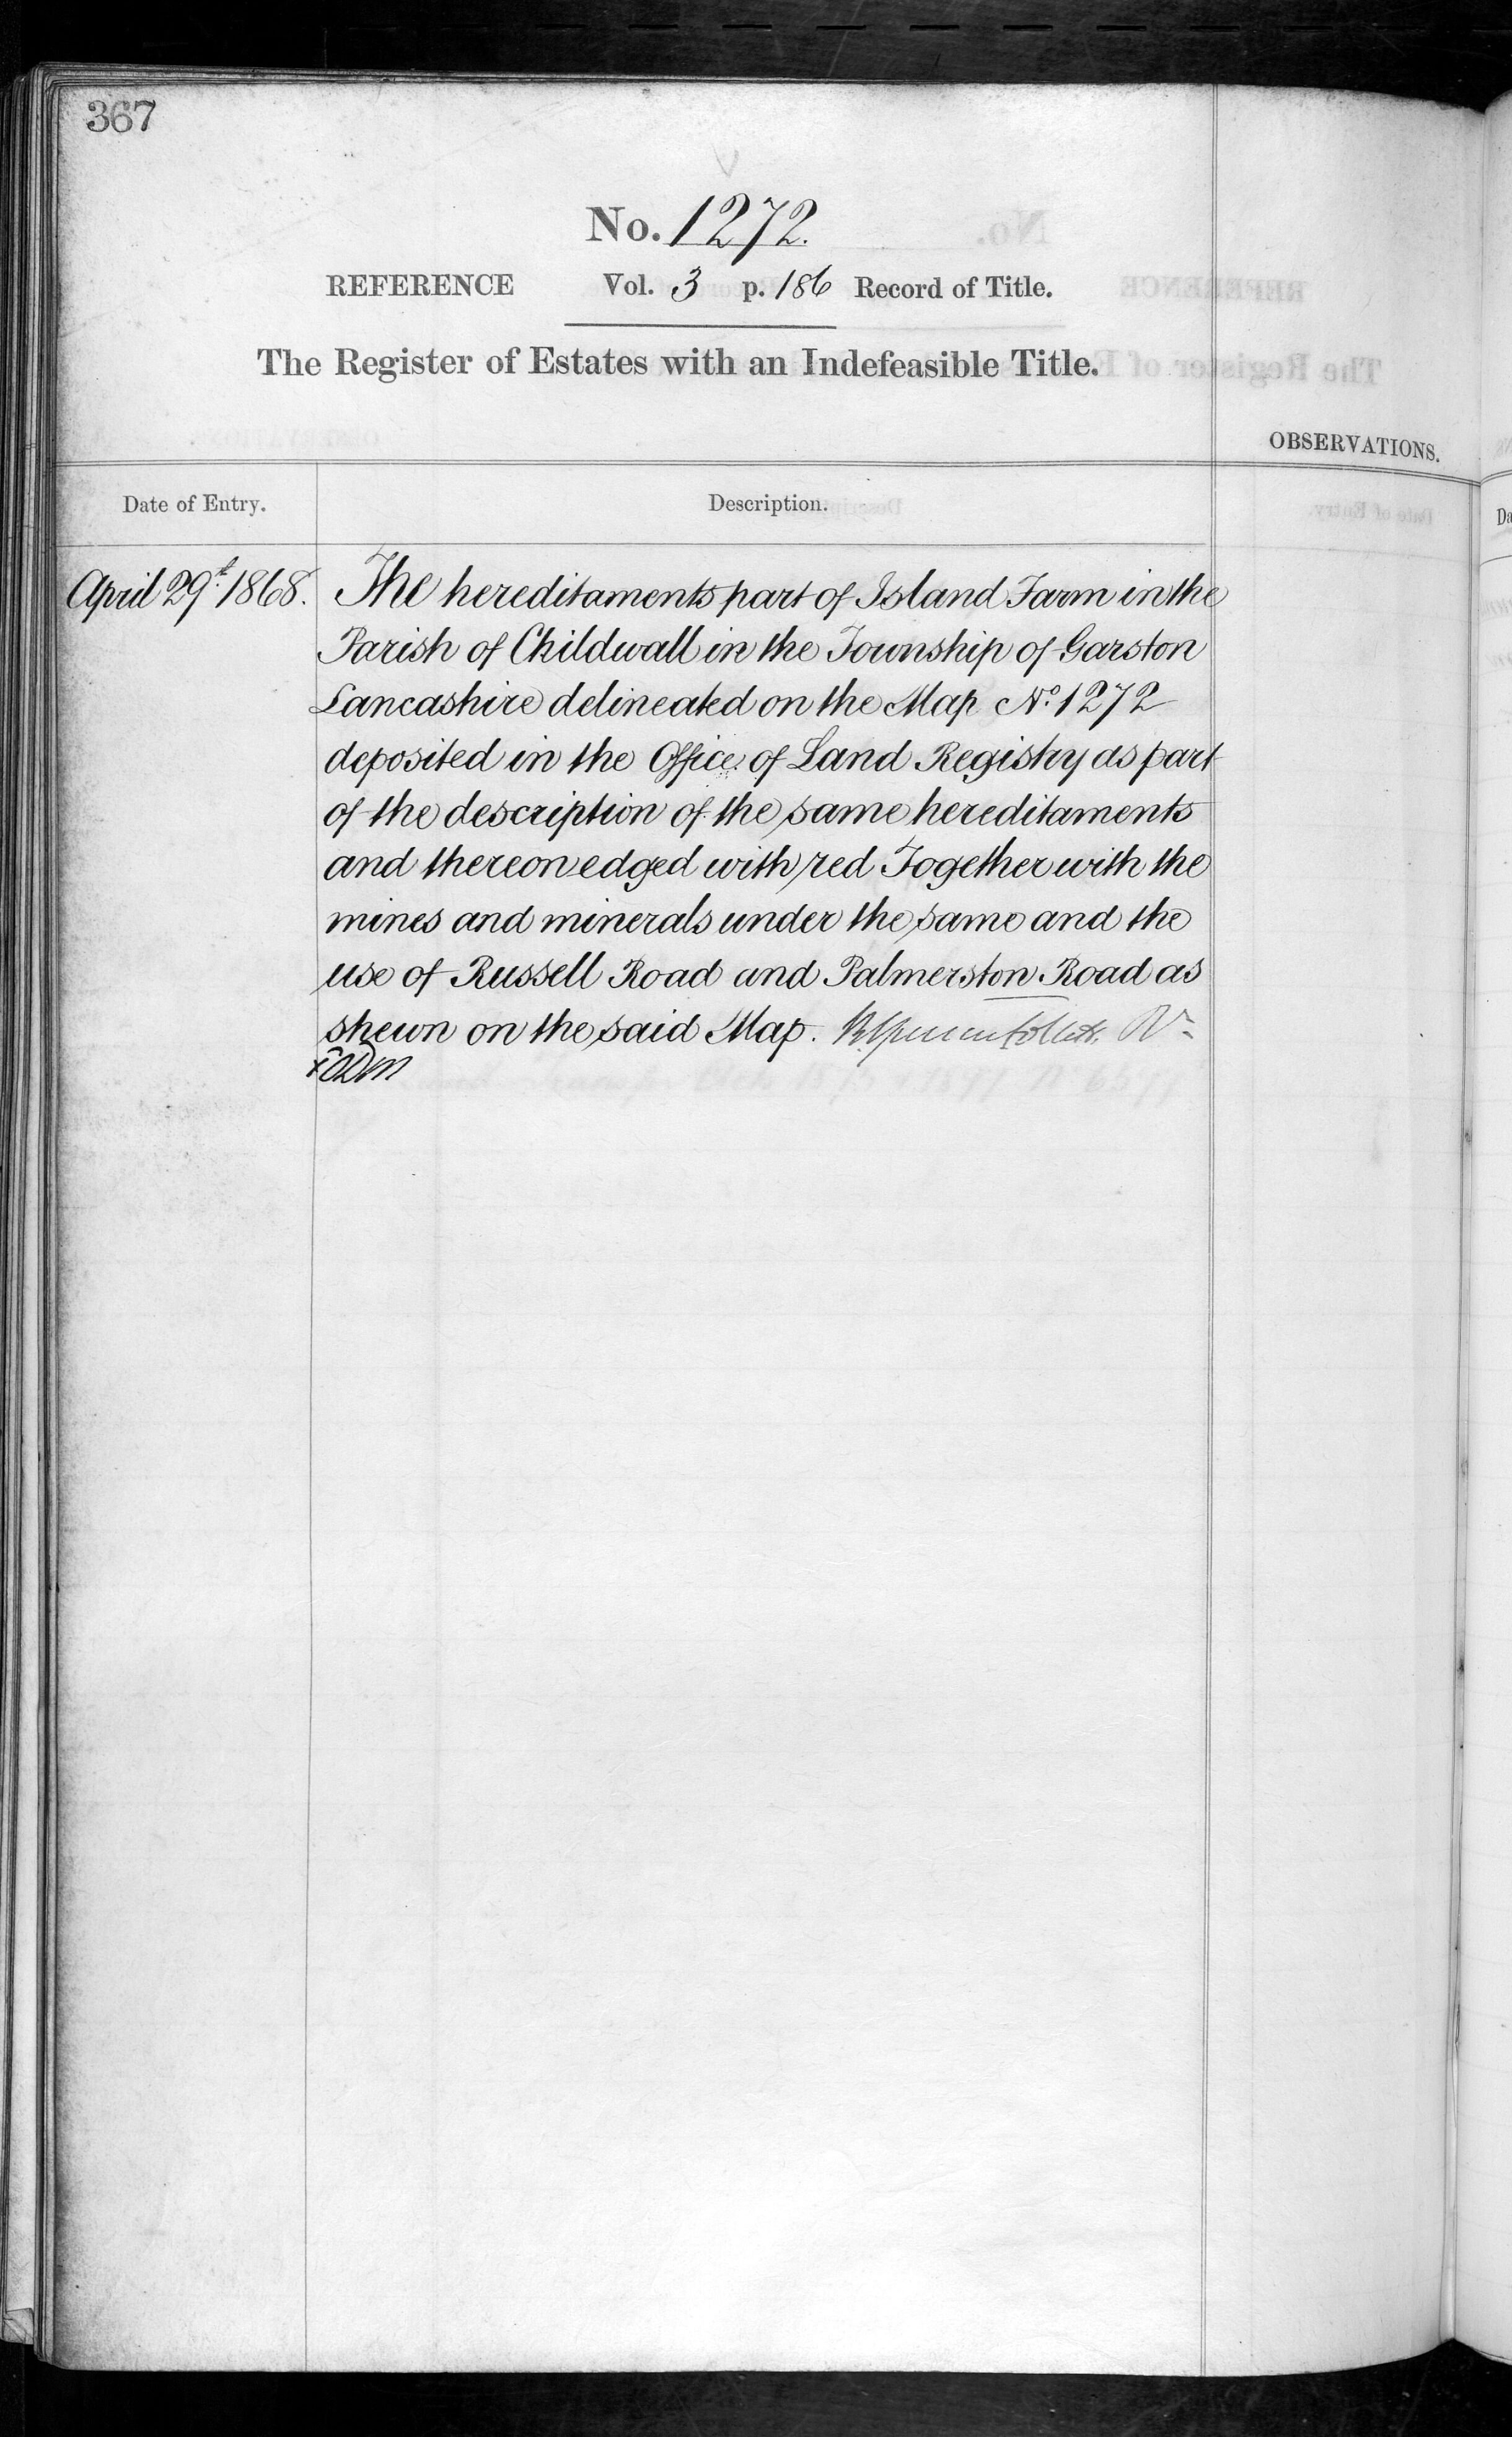 367
No. 1272.
REFERENCE Vol. 3 p. 186 Record of Title.
The Register of Estates with an Indefeasible Title.
OBSERVATIONS.
Date of Entry. Description.
April 29t. 1868. The hereditaments part of Island Farm in the
Parish of Childwall in the Township of Garston
Lancashire delineated on the Map No. 1272
deposited in the Office of Land Registry as part
of the description of the same hereditaments
and thereon edged with red Together with the
mines and minerals under the same and the
use of Russell Road and Palmerston Road as
shewn on the said Map.